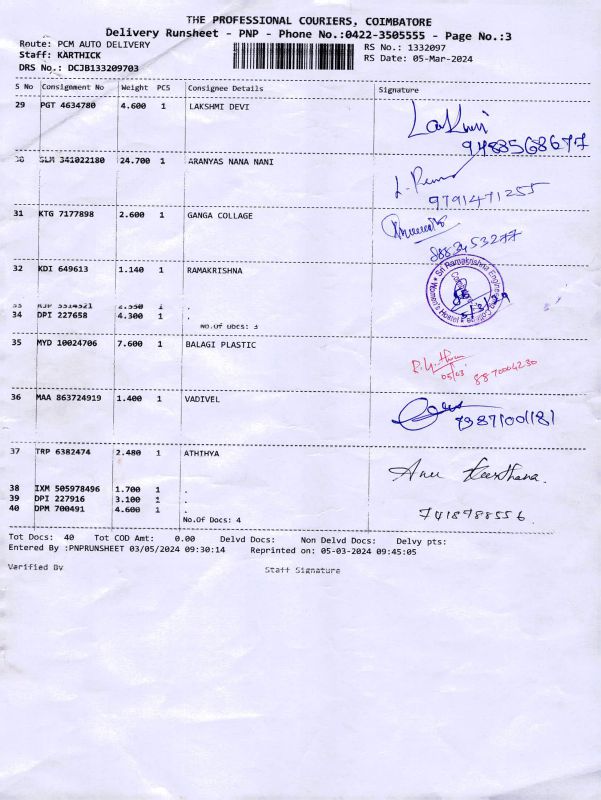 THE PROFESSIONAL COURIERS, COIMBATORE
Delivery Runsheet - PNP - Phone No.:0422-3505555 - Page No.:3
Route: PCM AUTO DELIVERY
RS No.: 1332097
Staff: KARTHICK
RS Date: 05-Mar-2024
DRS No.: DCJB133209703
S No Consignment No Weight PCS Consignee Details Signature
29 PGT 4634780 4.600 1 LAKSHMI DEVI
9483568677
30 SLM 341022180 24.700 1 ARANYAS NANA NANI
9791471255
31 KTG 7177898 2.600 1 GANGA COLLAGE
32 KDI 649613 1.140 1 RAMAKRISHNA
Sri Ramakrishna
Women's Hostel
33
34 DPI 227658 4.300 1 .
No.Of Docs: 3
35 MYD 10024706 7.600 1 BALAGI PLASTIC
05/03
8870004230
36 MAA 863724919 1.400 1 VADIVEL
37 TRP 6382474 2.480 1 ATHITHYA
Anu
38 IXM 505978496 1.700 1 .
39 DPI 227916 3.100 1 .
40 DPM 700491 4.600 1 .
7418788556
No.Of Docs: 4
Tot Docs: 40 Tot COD Amt: 0.00 Delvd Docs: Non Delvd Docs: Delvy pts:
Entered By :PNPRUNSHEET 03/05/2024 09:30:14 Reprinted on: 05-03-2024 09:45:05
Verified By Staff Signature